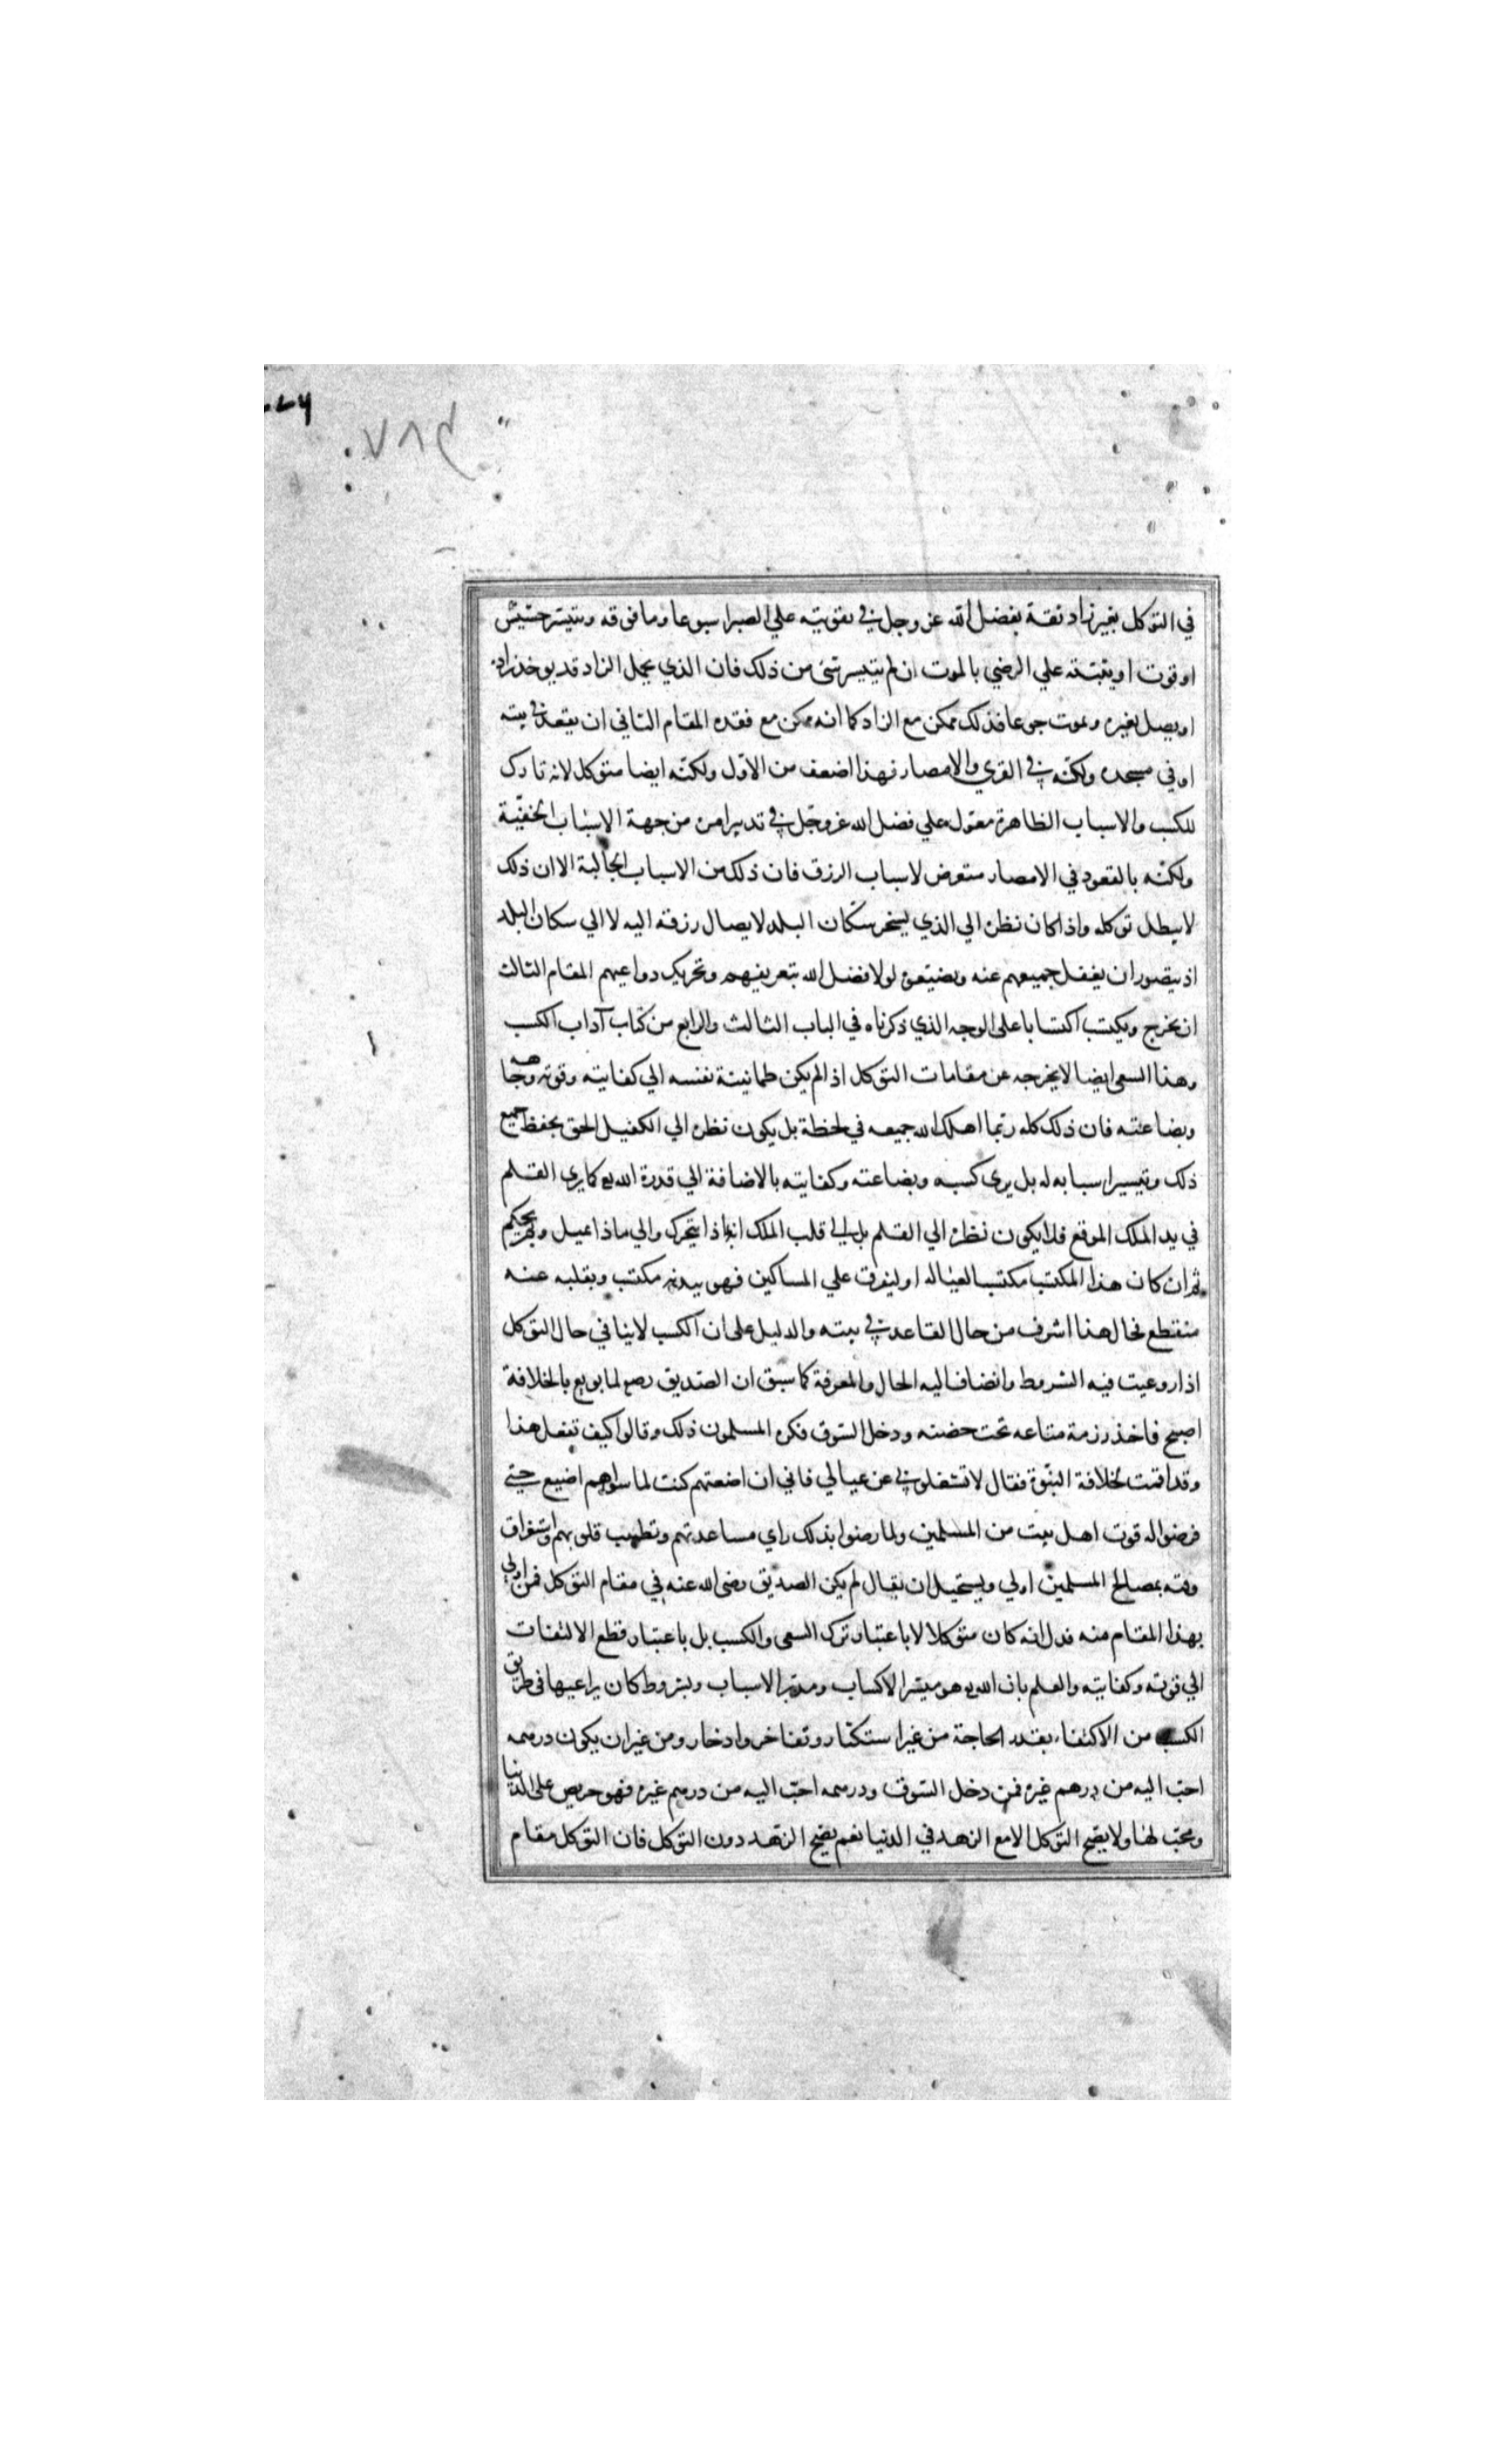 ٧٨٩
في التوكل بغير زاد ثقة بفضل الله عز وجل في تقويته علي الصبر اسبوعا وما فوقه وتيسر حشيش
او قوت او يثبته علي الرضي بالموت ان لم يتيسر شئ من ذلك فان الذي يحمل الزاد قد يوخذ زاده
او يصل بغيره ويموت جوعا فذلك ممكن مع الزاد كما انه ممكن مع فقده المقام الثاني ان يقعد في بيته
او في مسجده ولكنه في القري والامصار فهذا اضعف من الاول ولكنه ايضا متوكل لانه تارك
للكسب والاسباب الظاهرة معول علي فضل الله عز وجل في تدبير امره من جهة الاسباب الخفية
ولكنه بالقعود في الامصار متعرض لاسباب الرزق فان ذلك من الاسباب الجالبة الا ان ذلك
لا يبطل توكله واذا كان نظره الي الذي يسخر سكان البلد لايصال رزقه اليه لا الي سكان البلد
اذ يتصور ان يغفل جميعهم عنه ويضيعوه لولا فضل الله بتعريفهم وتحريك دواعيهم المقام الثالث
ان يخرج ويكتسب اكتسابا علي الوجه الذي ذكرناه في الباب الثالث والرابع من كتاب آداب الكسب
وهذا السعي ايضا لا يخرجه عن مقامات التوكل اذا لم يكن طمانينة نفسه الي كفايته وقوته وجاهه
وبضاعته فان ذلك كله ربما اهلك الله جميعه في لحظة بل يكون نظره الي الكفيل الحق بحفظ جميع
ذلك وتيسير اسبابه له بل يري كسبه وبضاعته وكفايته بالاضافة الي قدرة الله كما يري القلم
في يد الملك الموقع فلا يكون نظره الي القلم بل الي قلب الملك انه بماذا يتحرك والي ماذا يميل وبم يحكم
ثم ان كان هذا المكتسب مكتسبا لعياله او ليفرق علي المساكين فهو ببدنه مكتسب وبقلبه عنه
منقطع فحال هذا اشرف من حال القاعد في بيته والدليل علي ان الكسب لا ينافي حال التوكل
اذا روعيت فيه الشروط وانضاف اليه الحال والمعرفة كما سبق ان الصديق رضه لما بويع بالخلافة
اصبح فاخذ رزمة متاعه تحت حضنه ودخل السوق فكره المسلمون ذلك وقالوا كيف تفعل هذا
وقد اقمت لخلافة النبوة فقال لا تشغلوني عن عيالي فاني ان اضعتهم كنت لما سواهم اضيع حتي
فرضوا له قوت اهل بيت من المسلمين ولما رضوا بذلك راي مساعدتهم وتطييب قلوبهم واستغراق
وقته بمصالح المسلمين اولي ويستحيل ان يقال لم يكن الصديق رضي الله عنه في مقام التوكل فمن اولي
بهذا المقام منه فدل انه كان متوكلا لا باعتبار ترك السعي والكسب بل باعتبار قطع الالتفات
الي قوته وكفايته والعلم بان الله هو ميسر الاكساب ومدبر الاسباب وبشروط كان يراعيها في طريق
الكسب من الاكتفاء بقدر الحاجة من غير استكثار وتفاخر وادخار ومن غير ان يكون درهمه
احب اليه من درهم غيره فمن دخل السوق ودرهمه احب اليه من درهم غيره فهو حريص علي الدنيا
ومحب لها ولا يصح التوكل الا مع الزهد في الدنيا نعم يصح الزهد دون التوكل فان التوكل مقام